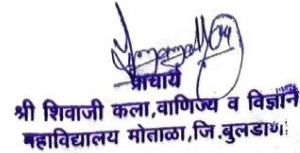 प्राचार्य
श्री शिवाजी कला,वाणिज्य व विज्ञान
महाविद्यालय मोताळा,जि.बुलडाणा